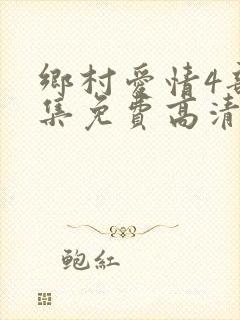 鄉村愛情4
集免費高清
鮑紅